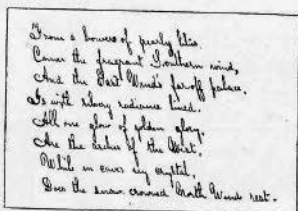 From a bower of pearly lilies
Comes the fragrant Southern wind,
And the East Wind's far-off palace,
Is with rosy radiance lined.
All one glow of golden glory.
Are the arches of the West,
While in caves icy crystal,
Does the snow crowned North Wind rest.